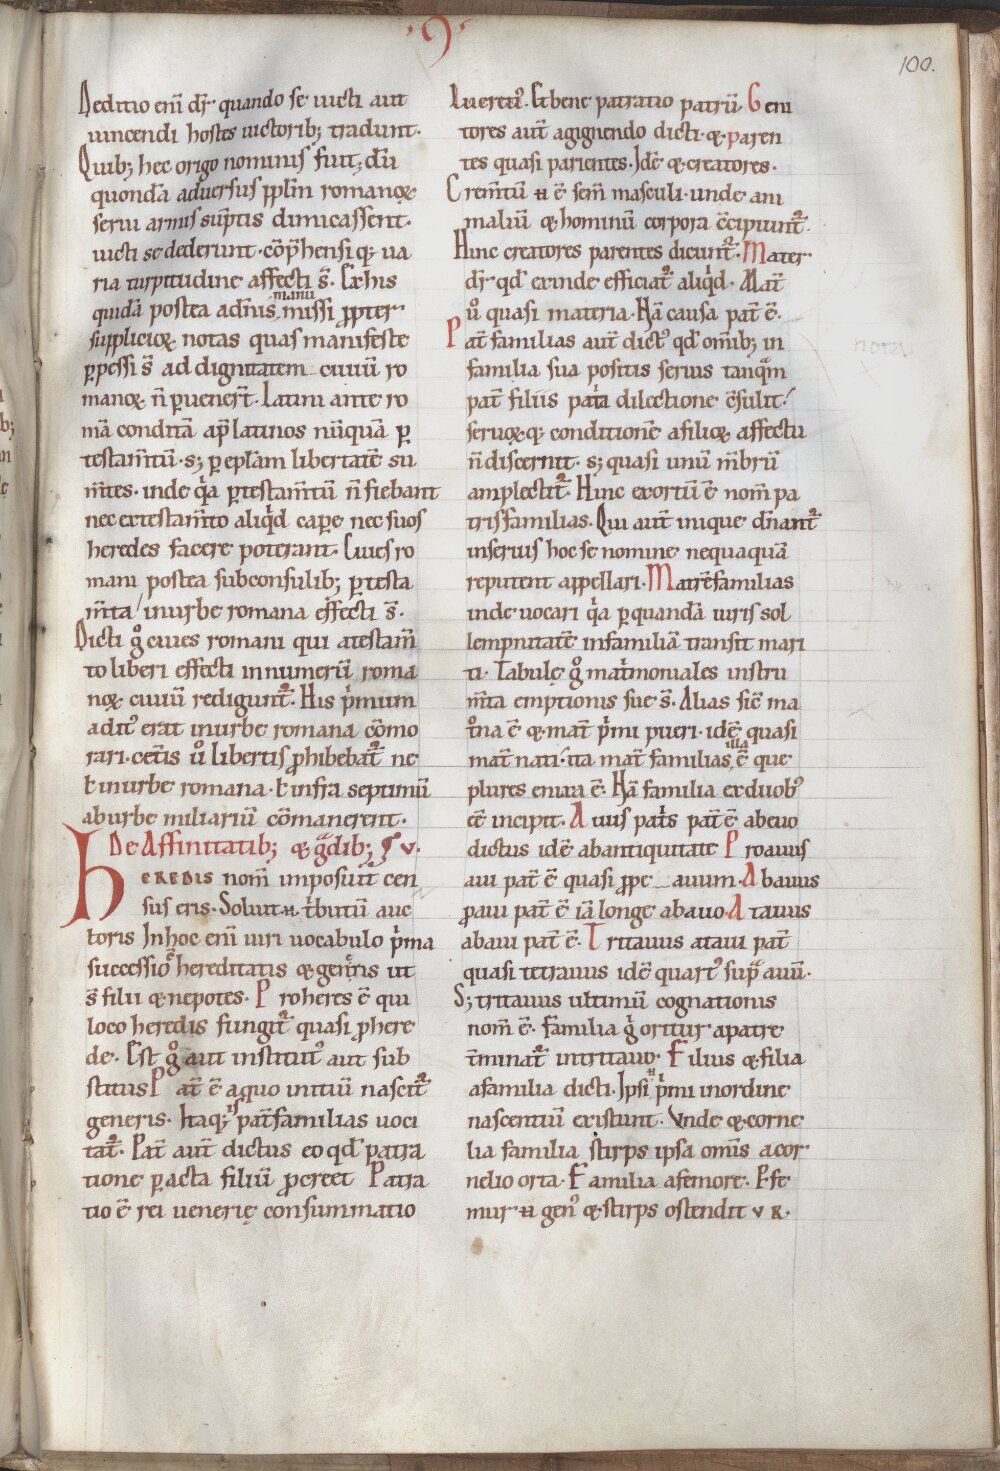 ·9·
100.
Deditio eni̅ dr̅ quando se uicti aut
uincendi hostes uictorib; tradunt·
Quib; hec origo nominis fuit; du̅
quonda̅ aduersus pp̅lm̅ romanoꝝ
serui armis su̅ptis dimicassent·
uicti se dederunt· co̅p̅hensi q; ua
ria turpitudine affecti s̅. Ex his
quida̅ postea adn̅is manu missi ꝓpter
supplicioꝝ notas quas manifeste
ꝑpessi s̅ ad dignitatem ciuiu̅ ro
manoꝝ n̅ ꝑuener̅t· Latini ante ro
ma̅ condita̅ ap̅ latinos nu̅qua̅ ꝑ
testam̅tu̅· s; ꝑ epl̅am libertate̅ su
m̅tes· inde q̍a ꝑtestam̅tu̅ n̅ fiebant
nec extestam̅to aliq̍d capꝑe nec suos
heredes facere poterant· Ciues ro
mani postea subconsulib; ꝑtesta
m̅ta inurbe romana effecti s̅·
Dicti gͦ ciues romani qui atestam̅
to liberi effecti innumeru̅ roma
noꝝ ciuiu̅ rediguntᷣ· His p̍mum
aditꝰ erat inurbe romana co̅mo
rari· cet̅is uͦ libertis ꝓhibebat̅ᷣ ne
ł inurbe romana· ł infra septimu̅
aburbe miliariu̅ co̅manerent·
De Affinitatib; ⁊ gᷓdib; ·v·
HEREDIS nom̅ imposuit cen
sus eris· Soluit .n. t̍butu̅ auc
toris In hoc eni̅ iuri uocabulo p̍ma
successio e̅ hereditatis ⁊ gen̅is ut
s̅ filii ⁊ nepotes· Pro heres e̅ qui
loco heredis fungitᷣ quasi ꝓ here
de· Est gͦ aut institutꝰ aut sub
stitus Pat̅ e̅ aquo initiu̅ nascit̅ᷣ
generis· Itaq; is pat̅familias uoci
tatᷣ· Pat̅ aut̅ dictus eo qd̅ patra
tione ꝑacta filiu̅ ꝓcreet Patra
tio e̅ rei uenerię consummatio
Lucretiꝰ· Et bene patratio patru̅· Geni
tores aut̅ agignendo dicti· ⁊ paren
tes quasi parientes· Ide̅ ⁊ creatores·
Crem̅tu̅ .n. e̅ sem̅ masculi· unde ani
maliu̅ ⁊ hominu̅ corpora c̅cipiuntᷣ·
Hinc creatores parentes dicuntᷣ· Mater
dr̅ qd̅ exinde efficiatᷣ aliq̍d· Mat̅
uͦ quasi materia· Ha̅ causa pat̅ e̅·
Pat̅ familias aut̅ dictꝰ qd̅ om̅ib; in
familia sua positis seruis tanqᷓm
pat̅ filiis pat̍a dilectione c̅sulit·
seruoꝝ q; conditione̅ afilioꝝ affectu
n̅ discernit· s; quasi unu̅ m̅bru̅
amplectitᷣ· Hinc exortu̅ e̅ nom̅ pa
trisfamilias· Qui aut̅ inique dn̅antᷣ
inseruis hoc se nomine nequaqua̅
reputent appellari· Matre̅familias
inde uocari q̍a ꝑquanda̅ iuris sol
lempnitate̅ infamilia̅ transit mari
ti· Tabulę gͦ mat̍moniales instru
m̅ta emptionis sue s̅· Alias sic̅ ma
t̊na e̅ ⁊ mat̅ p̍mi pueri· ide̅ quasi
mat̅ nati· ita mat̅ familias illa e̅ que
plures enixa e̅· Ha̅ familia exduobꝰ
e̅e incipit· Auus pat̍s pat̅ e̅ abeuo
dictus ide̅ abantiquitate Proauus
aui pat̅ e̅ quasi ꝓpe auum· Abauus
ꝓaui pat̅ e̅ ia̅ longe abauo· Atauus
abaui pat̅ e̅· Tritauus ataui pat̅
quasi tetrauus ide̅ quartꝰ supᷓ auu̅·
S; tritauus ultimu̅ cognationis
nom̅ e̅· familia g̍ oritur apatre
t̅minatᷣ intritauo· Filius ⁊ filia
afamilia dicti· Ipsi .n. p̍mi inordine
nascentiu̅ existunt· Vnde ⁊ corne
lia familia stirps ipsa omis̅ acor
nelio orta· Familia afemore· Fe
mur .n. gen̅ꝰ ⁊ stirps ostendit vr·